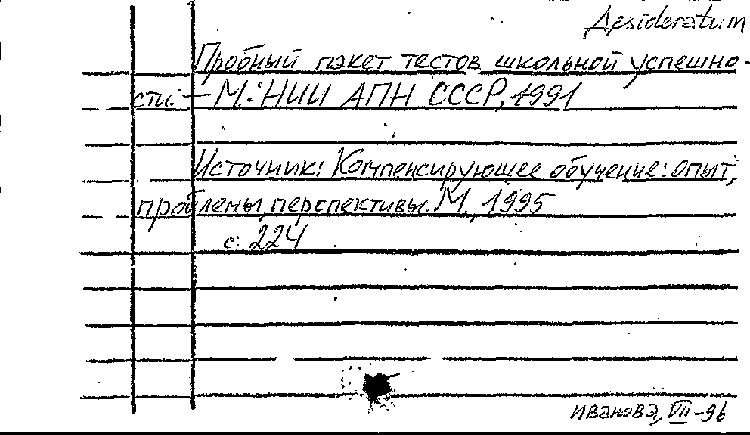 Desideratum
Пробный пакет тестов школьной успешно-
сти. - М.: НИИ АПН СССР, 1991
Источник: Компенсирующее обучение: опыт,
проблемы, перспективы. М., 1995
с. 224
Иванова, VII-96